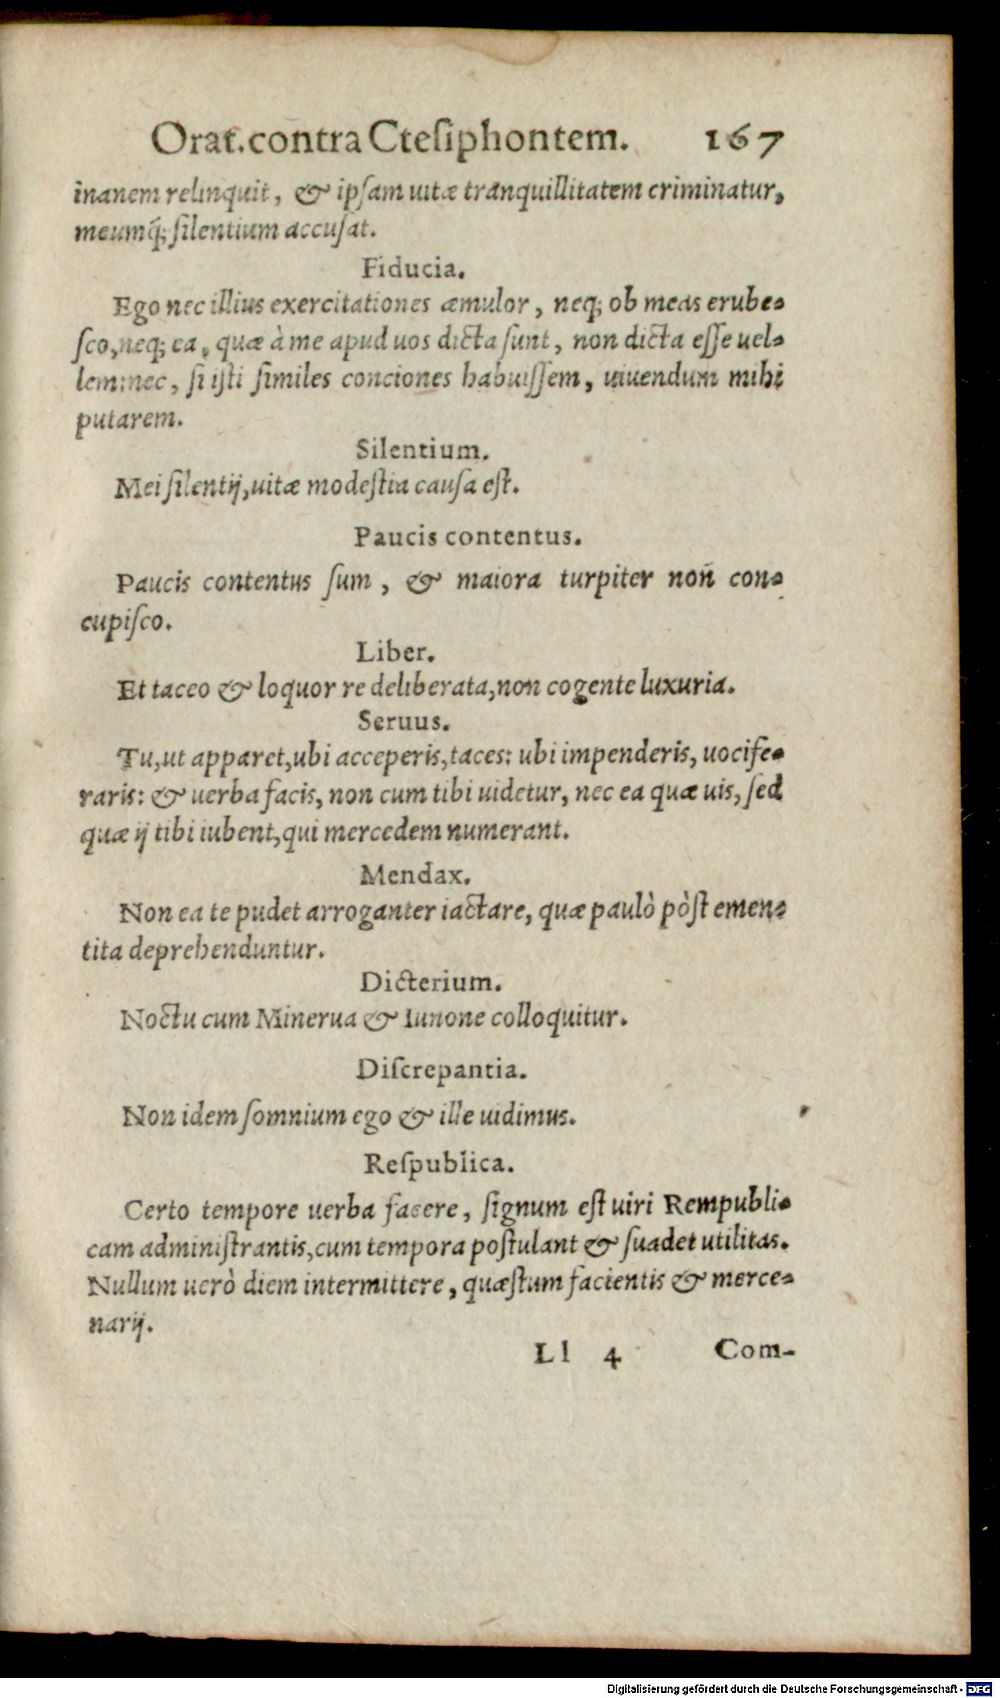 Orat. contra Ctesiphontem. 167
inanem relinquit, & ipsam uitæ tranquillitatem criminatur,
meumq́; silentium accusat.
Fiducia.
Ego nec illius exercitationes æmulor, neq; ob meas erube-
sco, neq; ea, quæ à me apud uos dicta sunt, non dicta esse uel-
lem: nec, si isti similes conciones habuissem, uiuendum mihi
putarem.
Silentium.
Mei silentij, uitæ modestia causa est.
Paucis contentus.
Paucis contentus sum, & maiora turpiter non con-
cupisco.
Liber.
Et taceo & loquor re deliberata, non cogente luxuria.
Seruus.
Tu, ut apparet, ubi acceperis, taces: ubi impenderis, uocife-
raris: & uerba facis, non cum tibi uidetur, nec ea quæ uis, sed
quæ ij tibi iubent, qui mercedem numerant.
Mendax.
Non ea te pudet arroganter iactare, quæ paulò pòst emen-
tita deprehenduntur.
Dicterium.
Noctu cum Minerua & Iunone colloquitur.
Discrepantia.
Non idem somnium ego & ille uidimus.
Respublica.
Certo tempore uerba facere, signum est uiri Rempubli-
cam administrantis, cum tempora postulant & suadet utilitas.
Nullum uerò diem intermittere, quæstum facientis & merce-
narij.
Ll 4 Com-
Digitalisierung gefördert durch die Deutsche Forschungsgemeinschaft - DFG